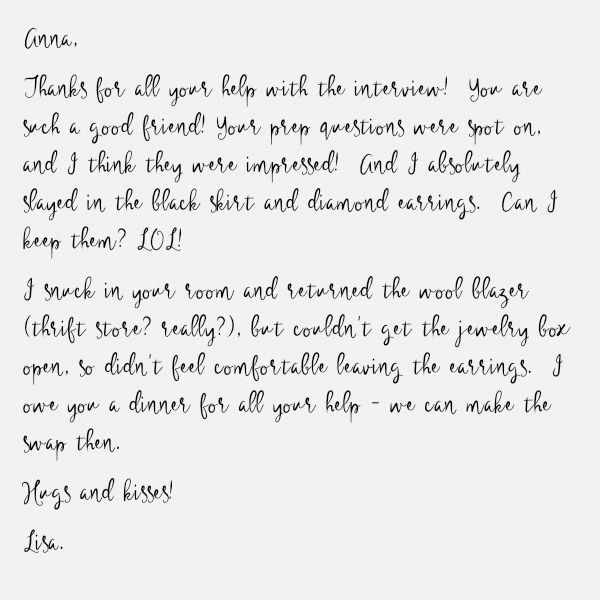 Anna,
Thanks for all your help with the interview! You are
such a good friend! Your prep questions were spot on,
and I think they were impressed! And I absolutely
slayed in the black skirt and diamond earrings. Can I
keep them? LOL!
I snuck in your room and returned the wool blazer
(thrift store? really?), but couldn't get the jewelry box
open, so didn't feel comfortable leaving the earrings. I
owe you a dinner for all your help - we can make the
swap then.
Hugs and kisses!
Lisa.